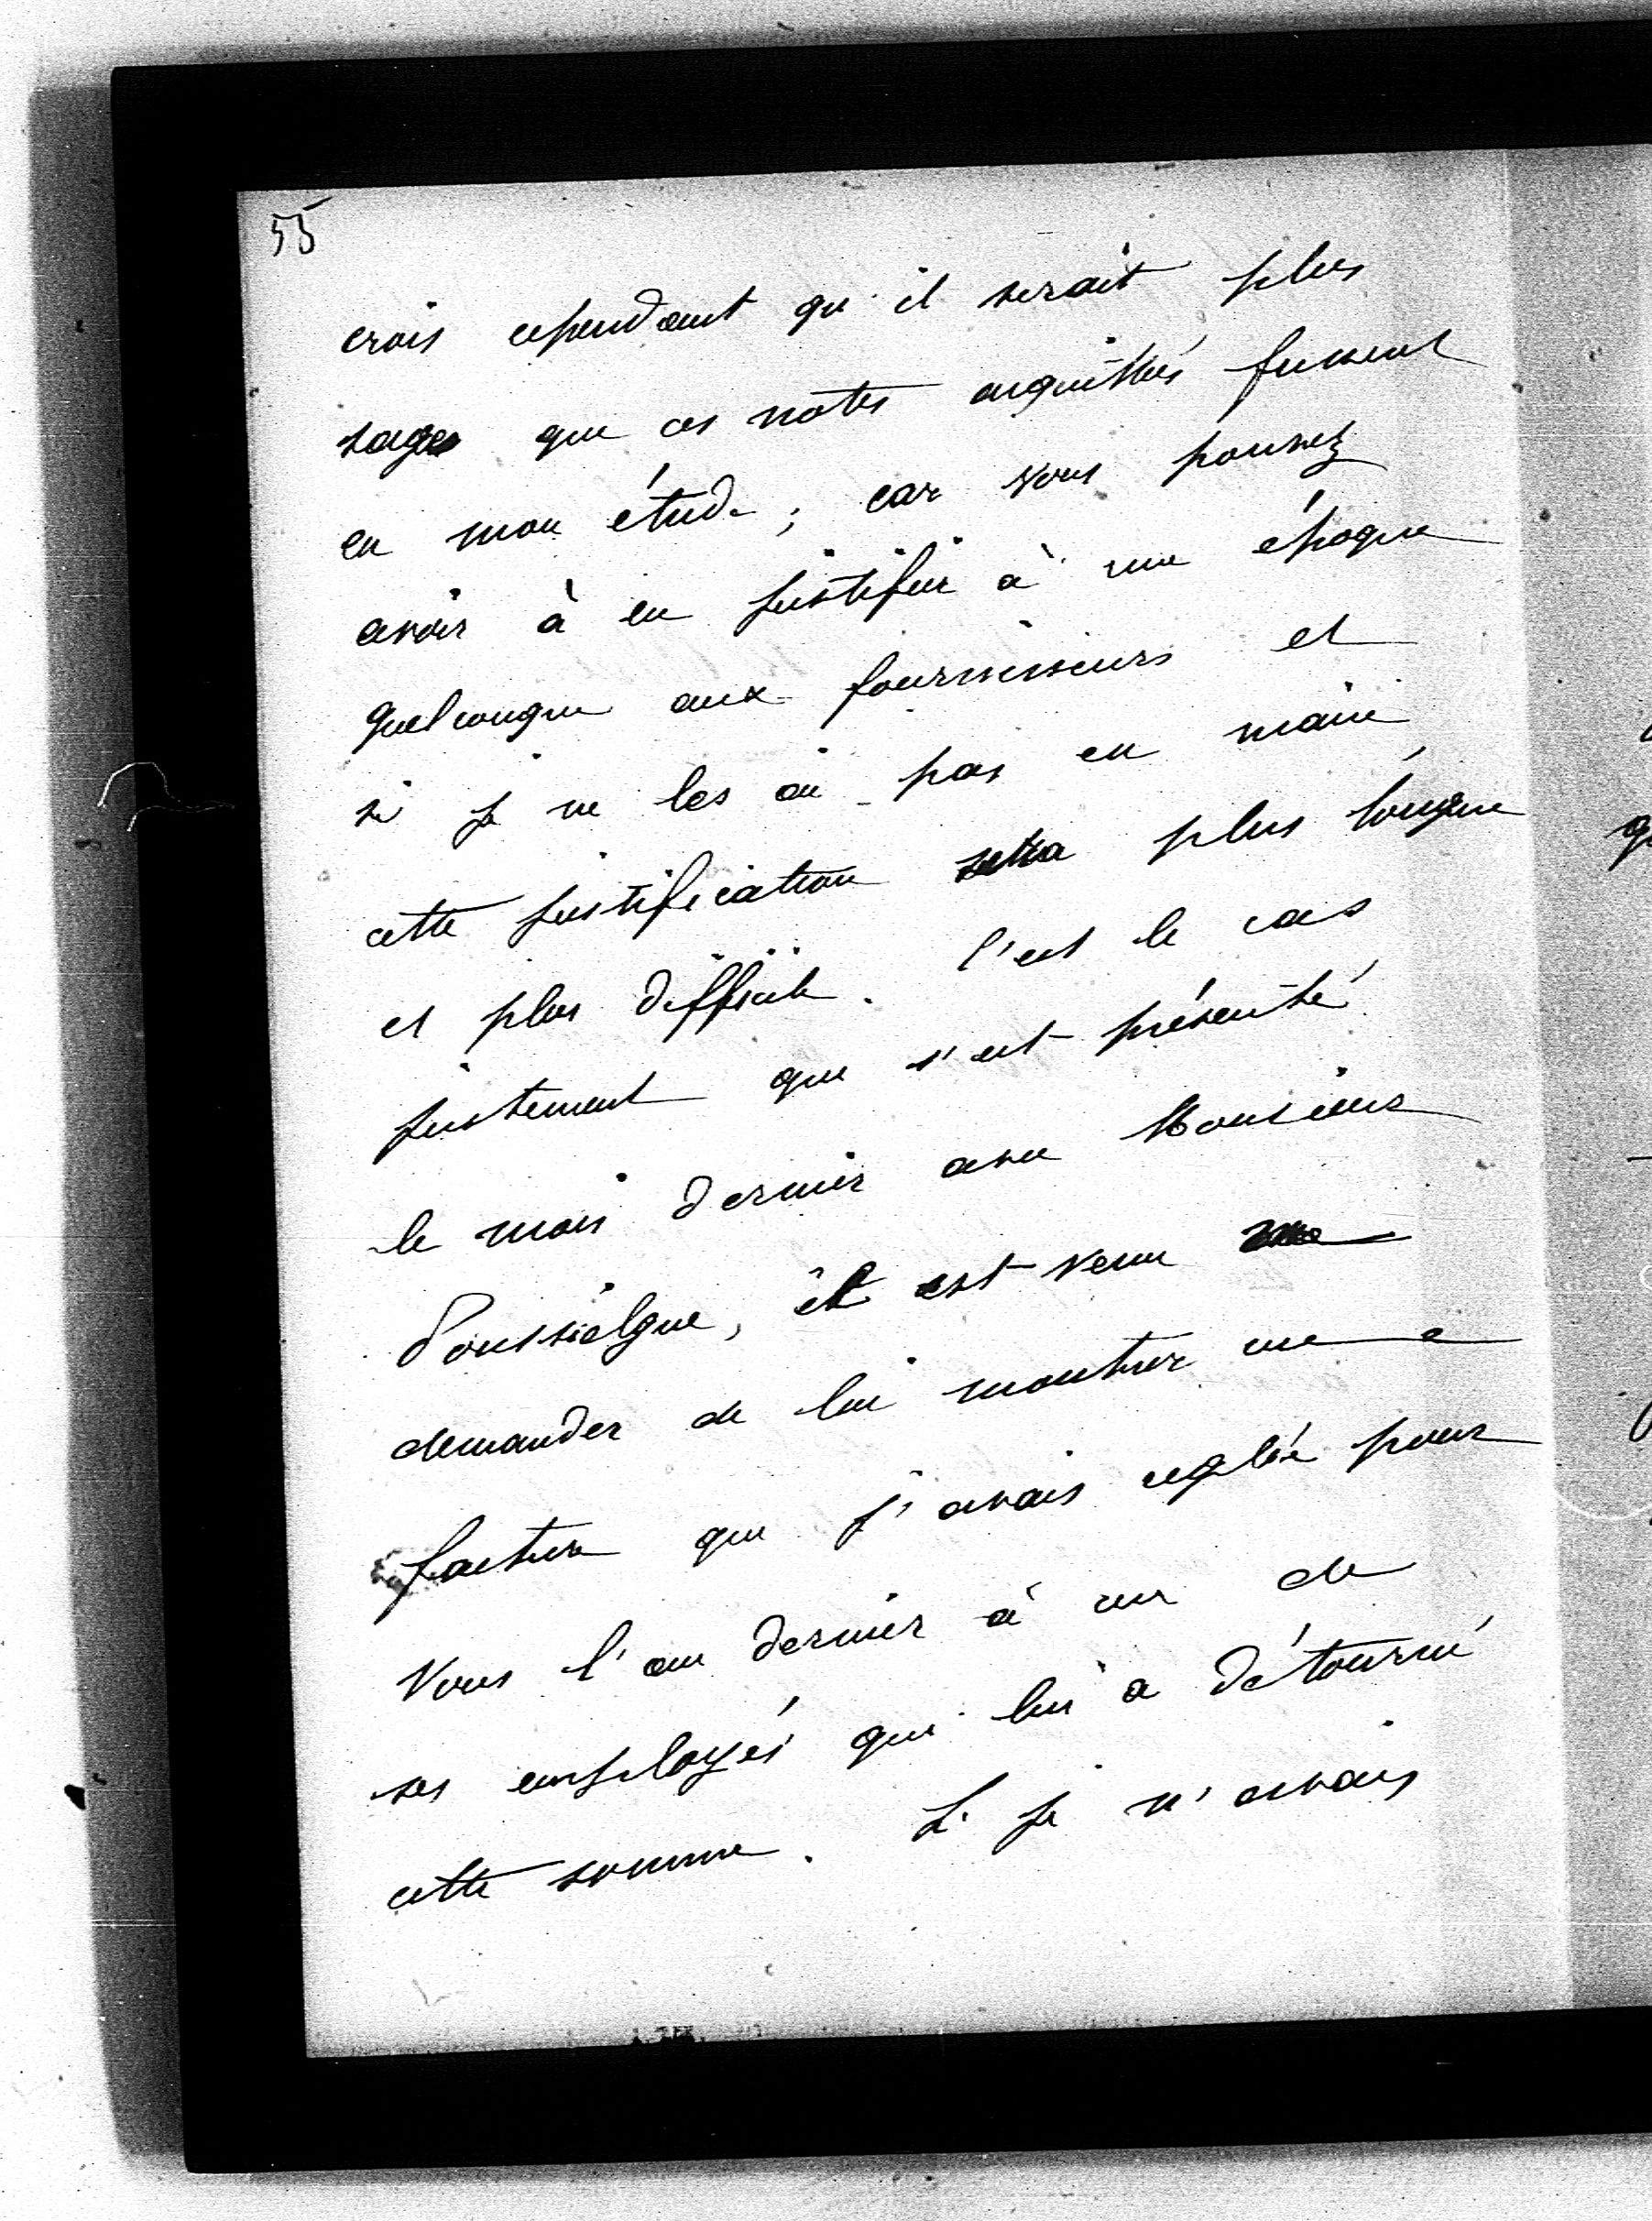 55
crois cependant qu'il serait plus
sage que ces notes acquittés fussent
en mon étude ; car vous pouvez
avoir à en justifier à une époque
quelconque aux fournisseurs et
si je ne les ai pas en main
cette justification sera plus longue
et plus difficile. C'est le cas
justement que s'est présenté
le mois dernier avec Monsieur
Poussielgue, il est venu me
demander de lui montrer une
facture que j'avais reglée pour
vous l'an dernier à un de
ses employés qui lui a détourné
cette somme. Si je n'avais